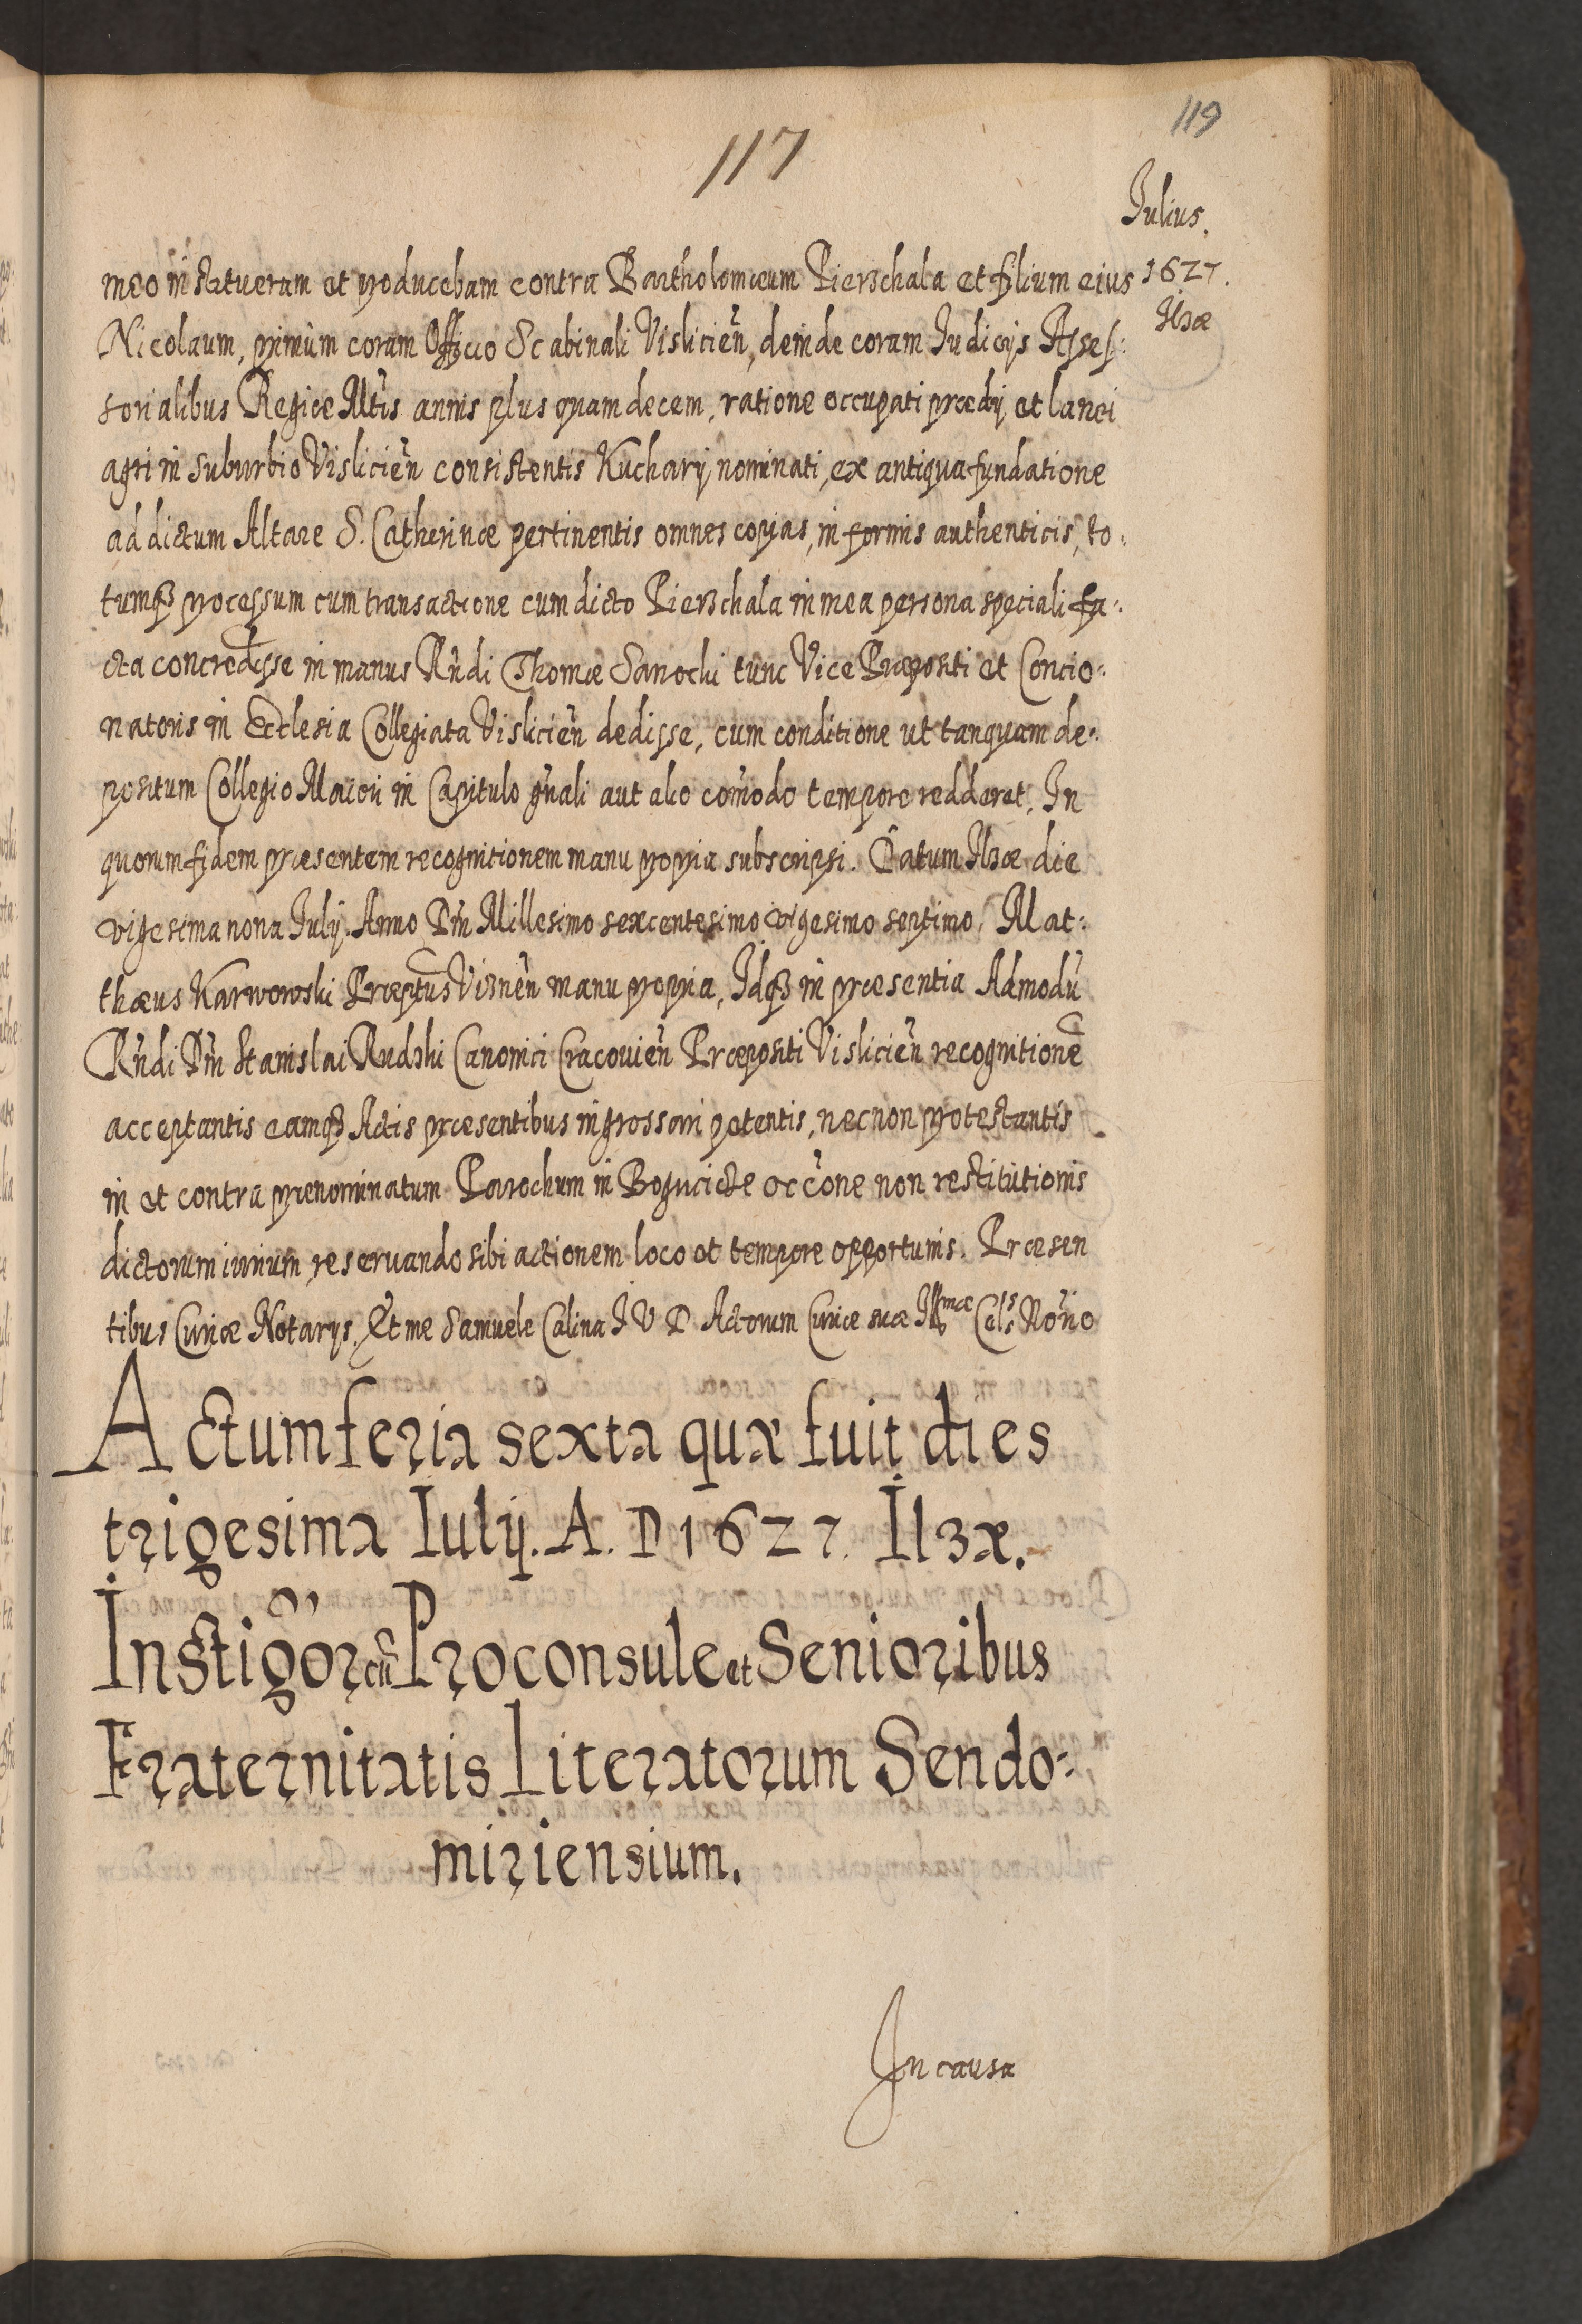 119
117
Julius.
1627.
Ilzæ
meo institueram et producebam contra Bartholomæum Pierzchala et filium eius
Nicolaum, primùm coram Officio Scabinali Visliciēn, deinde coram Judicijs Asses:
sorialibus Regiæ Mtis annis plus quam decem, ratione occupati prædij et lanei
agri in suburbio Visliciēn consistentis Kuchary nominati, ex antiqua fundatione
ad dictum Altare S. Catherinæ pertinentis omnes copias, in formis authenticis, to:
tumqȝ processum cum transactione cum dicto Pierzchala in mea persona speciali fa:
cta concredisse in manus Rndi Thomæ Sanocki tunc Vice Præpositi et Concio:
natoris in Ecclesia Collegiata Visliciēn dedisse, cum conditione ut tanquam de:
positum Collegio Maiori in Capitulo gnali aut alio comodo tempore redderet. In
quorum fidem præsentem recognitionem manu propria subscripsi. Datum Ilzæ die
vigesima nona Julij. Anno Dni Millesimo sexcentesimo vigesimo septimo. Mat:
thæus Karwowski Præptus Viznēn manu propria. Idqȝ in præsentia Admodū
Rndi Dni Stanislai Rudzki Canonici Cracouiēn Præpositi Visliciēn recognitionē
acceptantis eamqȝ Actis præsentibus ingrossari petentis, necnon protestantis
in et contra prænominatum Parochum in Bogucice occōne non restitutionis
dictorum iurium, reseruando sibi actionem loco et tempore opportunis. Præsen
tibus Curiæ Notarijs. Et me Samuele Calina J V D Actorum Curiæ suæ Illmæ Cels Nōrio
Actum feria sexta quæ fuit dies
trigesima Iulij. A. D 1627. Ilzæ.
Instigōr cū Proconsule et Senioribus
Fraternitatis Literatorum Sendo:
miriensium.
In causa